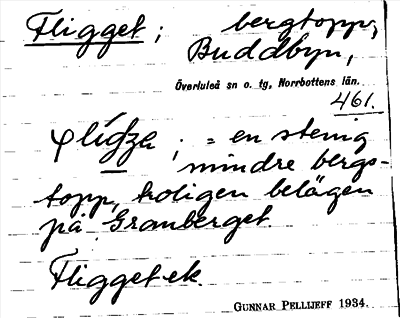 Fligget; bergtopp,
Buddbyn,
Överluleå sn o. tg, Norrbottens län.
461.
; = en stenig
mindre bergs-
topp, troligen belägen
på Granberget.
Fligget
GUNNAR PELLIJEFF 1934.